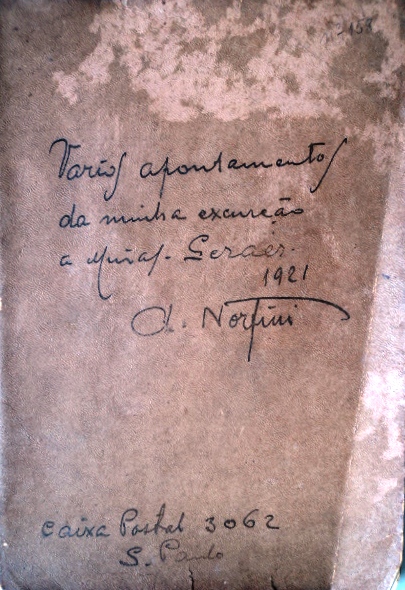 Varios apontamentos
da minha excursão
a Minas. Geraes.
1921
A. Norfini
Caixa Postal 3062
S. Paulo